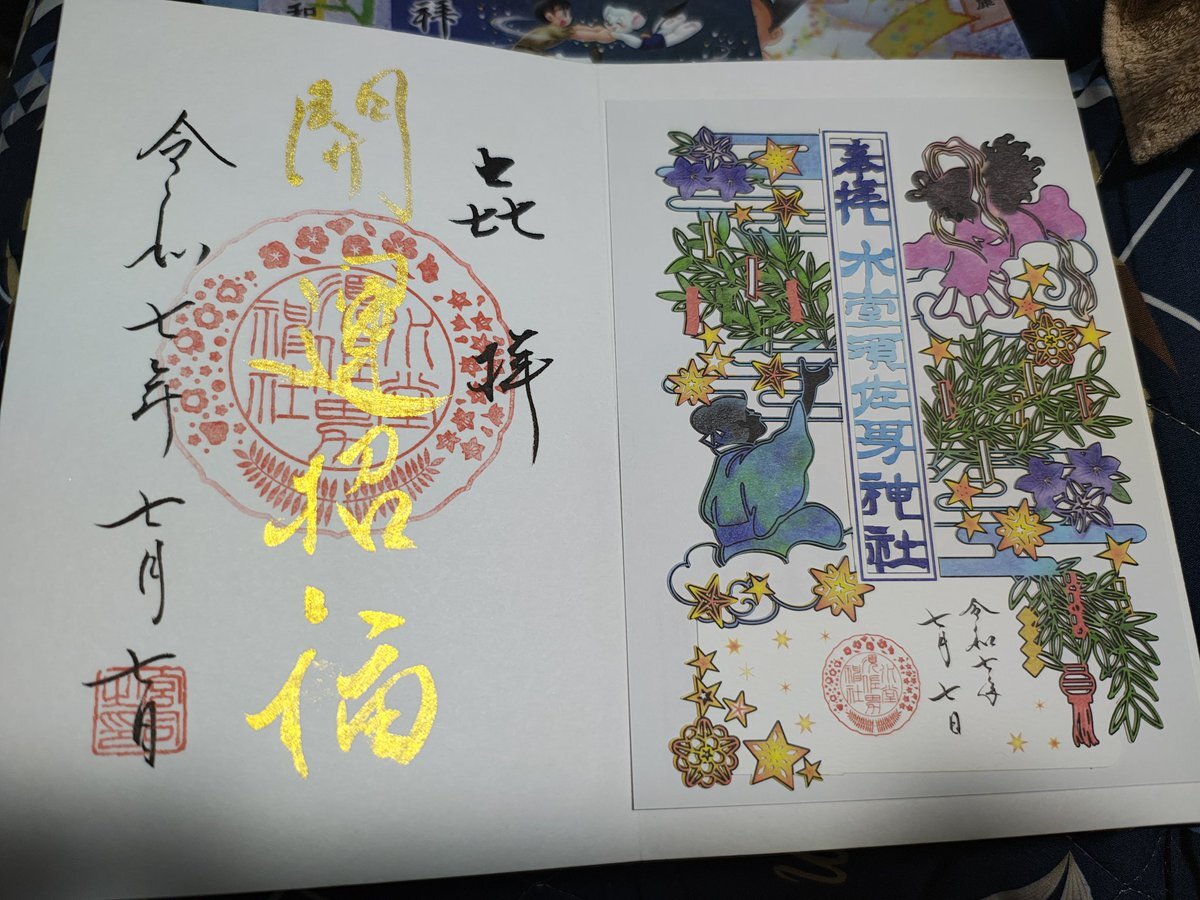 拝
和
奉拝 水堂須佐男神社
令和七年
七月七日
水堂
須佐男
神社
㐂拝
開運招福
水堂
須佐男
神社
令和七年七月七日